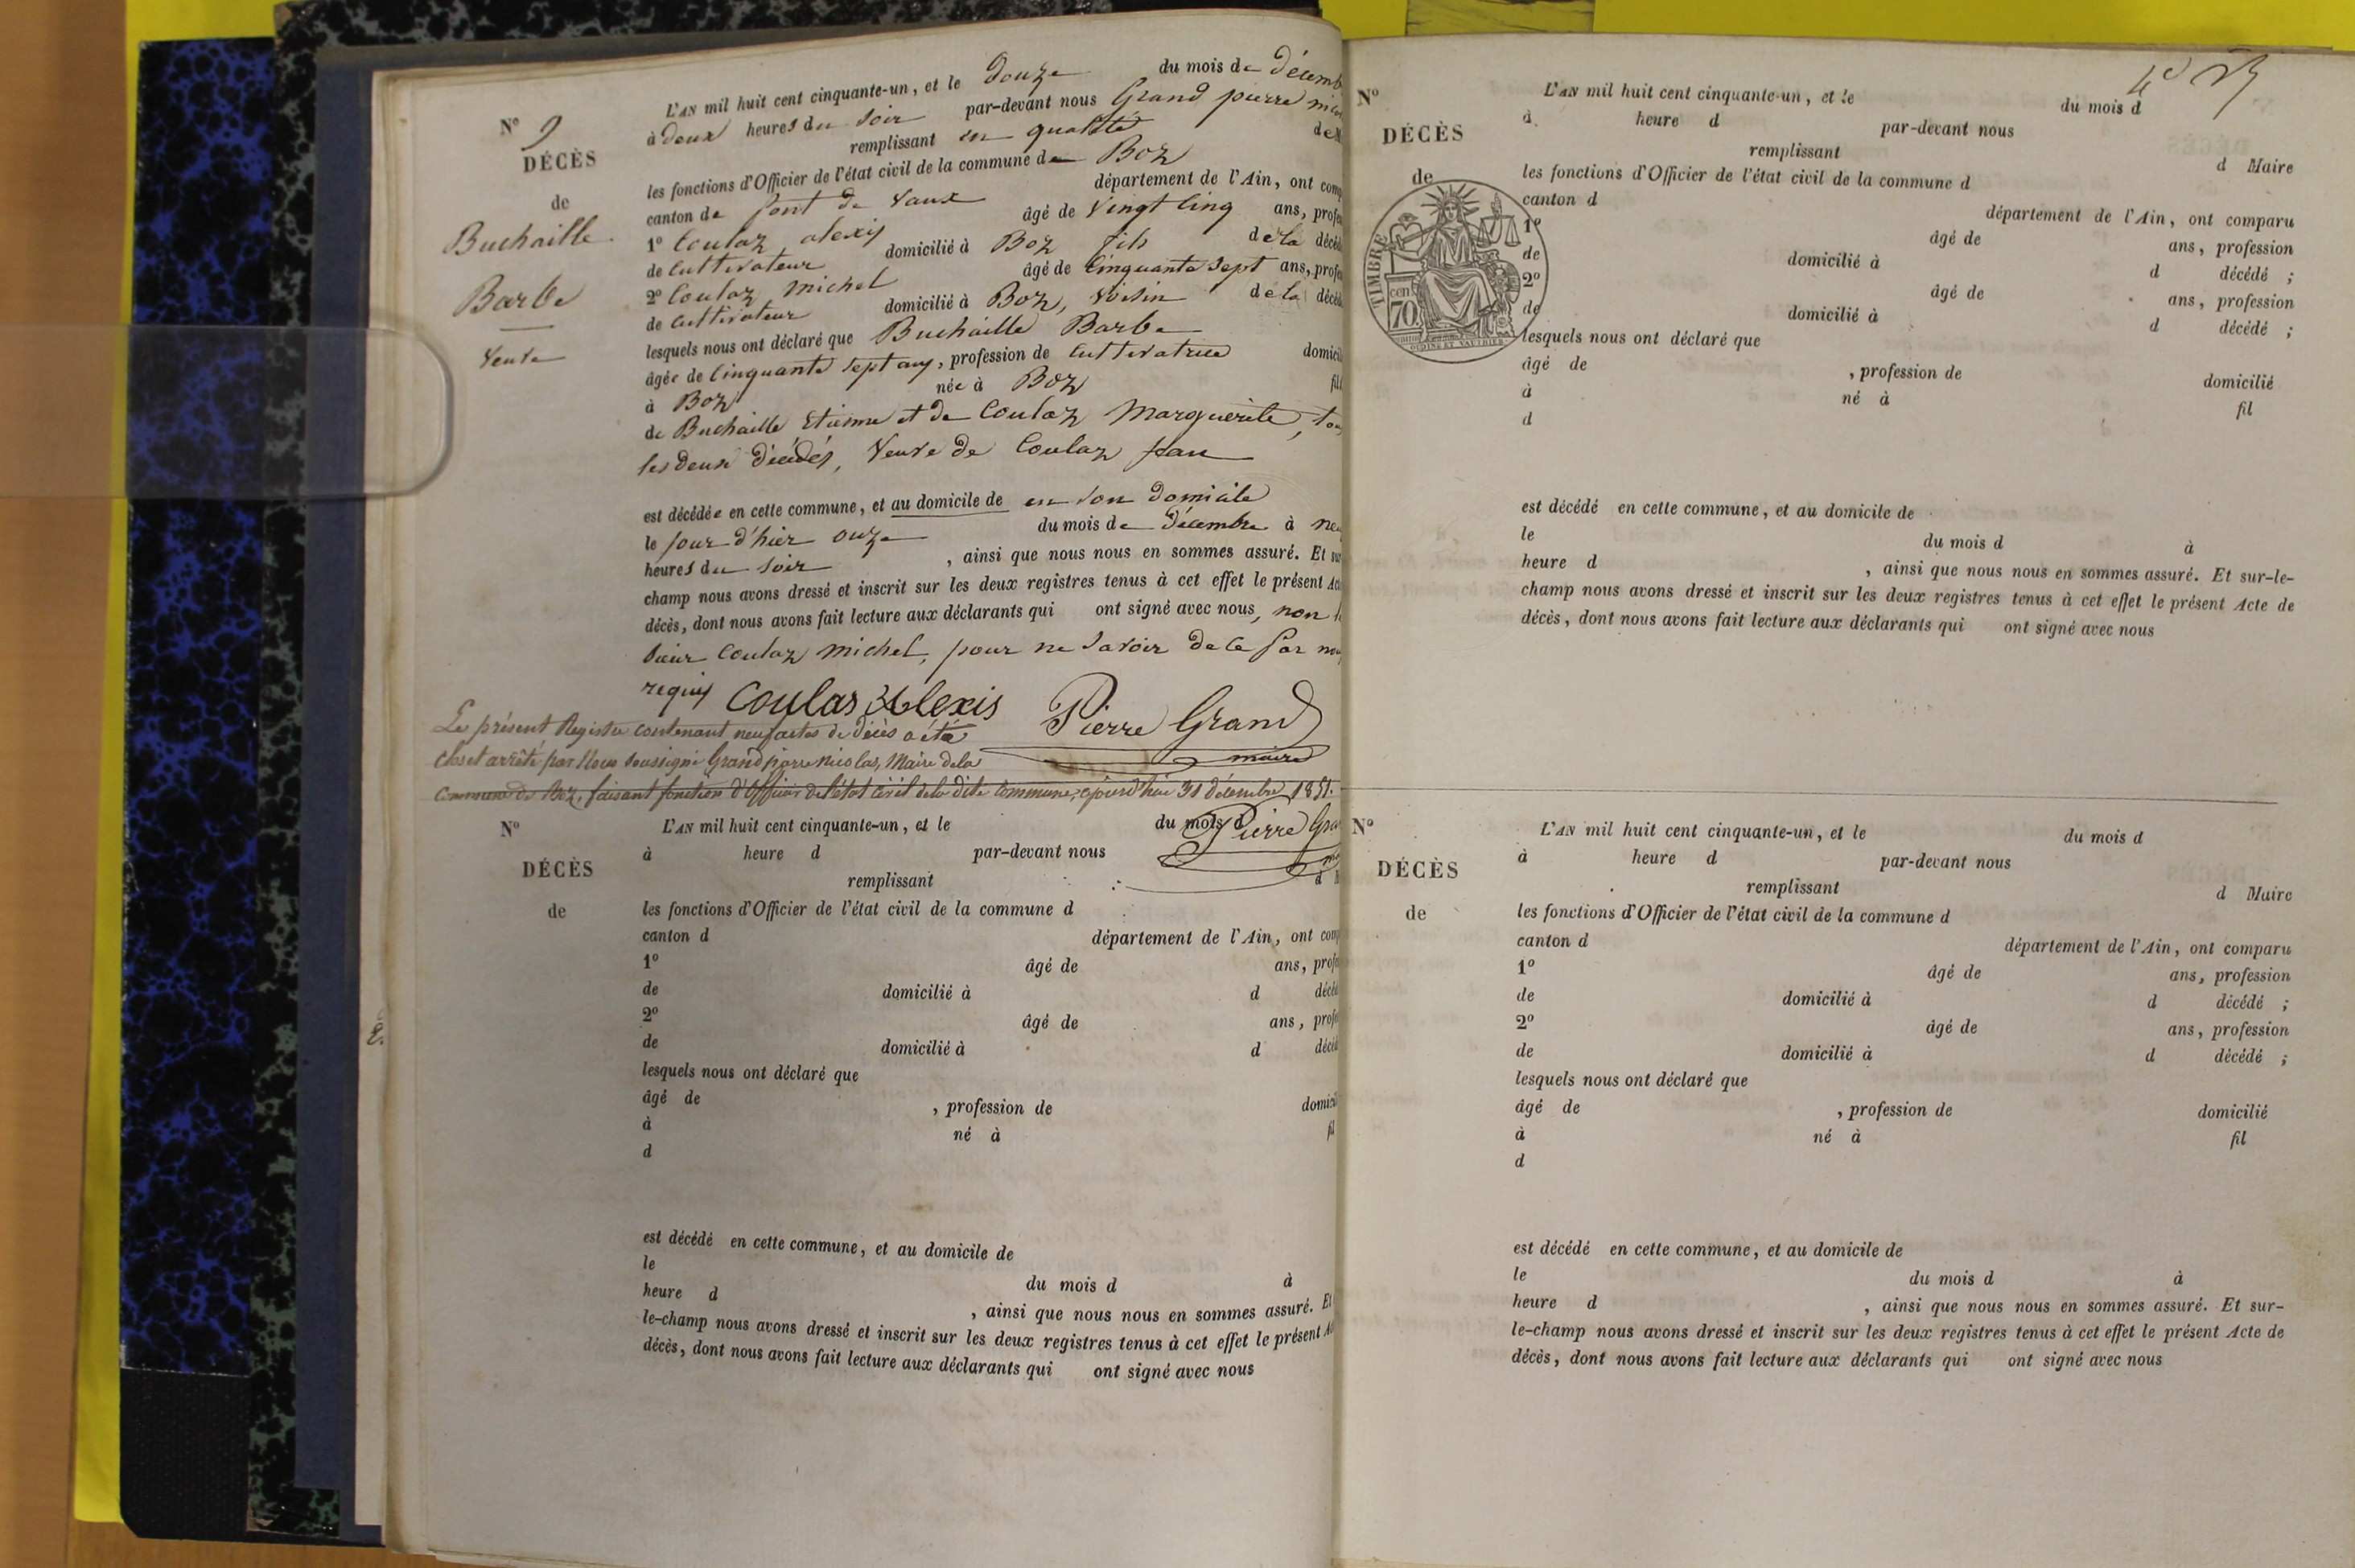 N° 9
DÉCÈS
de
Buchaille
Barbe
Veuve
L'AN mil huit cent cinquante-un, et le douze du mois de décemb
à deux heures du soir par-devant nous Grand pierre nico
remplissant en qualité de M
les fonctions d'Officier de l'état civil de la commune de Boz
canton de pont de Vaux département de l'Ain, ont comp
1° Coulaz alexis âgé de vingt cinq ans, profes
de cultivateur domicilié à Boz fils de la décéd
2° Coulaz michel âgé de cinquante sept ans, profes
de cultivateur domicilié à Boz, voisin de la décéd
lesquels nous ont déclaré que Buchaille Barbe
âgée de cinquante sept ans, profession de cultivatrice domicil
à Boz née à Boz fill
de Buchaille Etienne et de Coulaz Marguerite, tou
les deux décédés, Veuve de Coulaz jean
est décédée en cette commune, et au domicile de en son domicile
le jour d'hier onze du mois de décembre à neu
heures du soir , ainsi que nous nous en sommes assuré. Et sur
champ nous avons dressé et inscrit sur les deux registres tenus à cet effet le présent Act
décès, dont nous avons fait lecture aux déclarants qui ont signé avec nous, non le
sieur Coulaz michel, pour ne savoir de ce par nous
requis Coulas Alexis Pierre Grand
maire
Le présent Registre contenant neuf actes de décès a été
clos et arrêté par Nous soussigné Grand pierre nicolas, Maire de la
Commune de Boz, faisant fonction d'officier de l'état civil de la dite commune, aujourd'hui 31 décembre 1851.
Pierre Gra
N°
DÉCÈS
de
L'AN mil huit cent cinquante-un, et le du mois d
à heure d par-devant nous
remplissant d M
les fonctions d'Officier de l'état civil de la commune d
canton d département de l'Ain, ont comp
1° âgé de ans, profes
de domicilié à d décéd
2° âgé de ans, profes
de domicilié à d décéd
lesquels nous ont déclaré que
âgé de , profession de domicil
à né à fil
d
est décédé en cette commune, et au domicile de
le du mois d à
heure d , ainsi que nous nous en sommes assuré. Et
le-champ nous avons dressé et inscrit sur les deux registres tenus à cet effet le présent A
décès, dont nous avons fait lecture aux déclarants qui ont signé avec nous
N°
DÉCÈS
de
TIMBRE
70
cen
L'AN mil huit cent cinquante-un, et le du mois d
à heure d par-devant nous
remplissant d Maire
les fonctions d'Officier de l'état civil de la commune d
canton d département de l'Ain, ont comparu
1° âgé de ans, profession
de domicilié à d décédé ;
2° âgé de ans, profession
de domicilié à d décédé ;
lesquels nous ont déclaré que
âgé de , profession de domicilié
à né à fil
d
est décédé en cette commune, et au domicile de
le du mois d à
heure d , ainsi que nous nous en sommes assuré. Et sur-le-
champ nous avons dressé et inscrit sur les deux registres tenus à cet effet le présent Acte de
décès, dont nous avons fait lecture aux déclarants qui ont signé avec nous
N°
DÉCÈS
de
L'AN mil huit cent cinquante-un, et le du mois d
à heure d par-devant nous
remplissant d Maire
les fonctions d'Officier de l'état civil de la commune d
canton d département de l'Ain, ont comparu
1° âgé de ans, profession
de domicilié à d décédé ;
2° âgé de ans, profession
de domicilié à d décédé ;
lesquels nous ont déclaré que
âgé de , profession de domicilié
à né à fil
d
est décédé en cette commune, et au domicile de
le du mois d à
heure d , ainsi que nous nous en sommes assuré. Et sur-
le-champ nous avons dressé et inscrit sur les deux registres tenus à cet effet le présent Acte de
décès, dont nous avons fait lecture aux déclarants qui ont signé avec nous